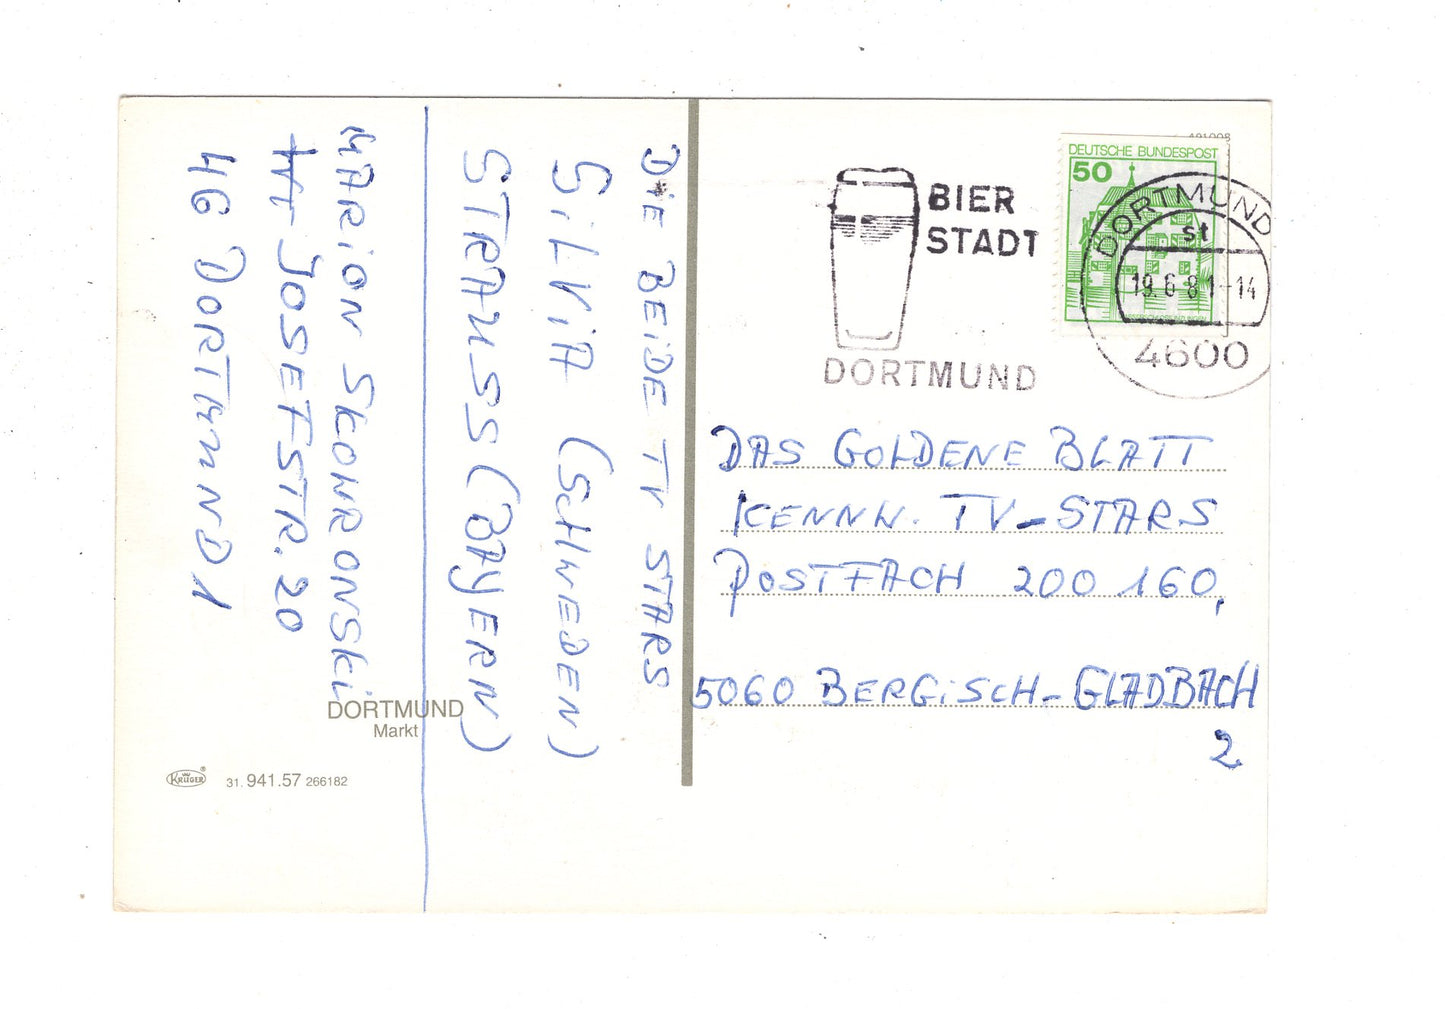 DIE BEIDE TV STARS
SiLViA (SCHWEDEN)
STRAUSS (BAYERN)
MARiON SKOWRONSKi
JOSEFSTR. 20
46 DORTMUND 1
DORTMUND
Markt
KRÜGER
31. 941.57 266182
BIER
STADT
DORTMUND
DEUTSCHE BUNDESPOST
50
DORTMUND
st
19.6-81-14
4600
DAS GOLDENE BLATT
KENNW. TV-STARS
POSTFACH 200 160,
5060 BERGiSCH-GLADBACH
2